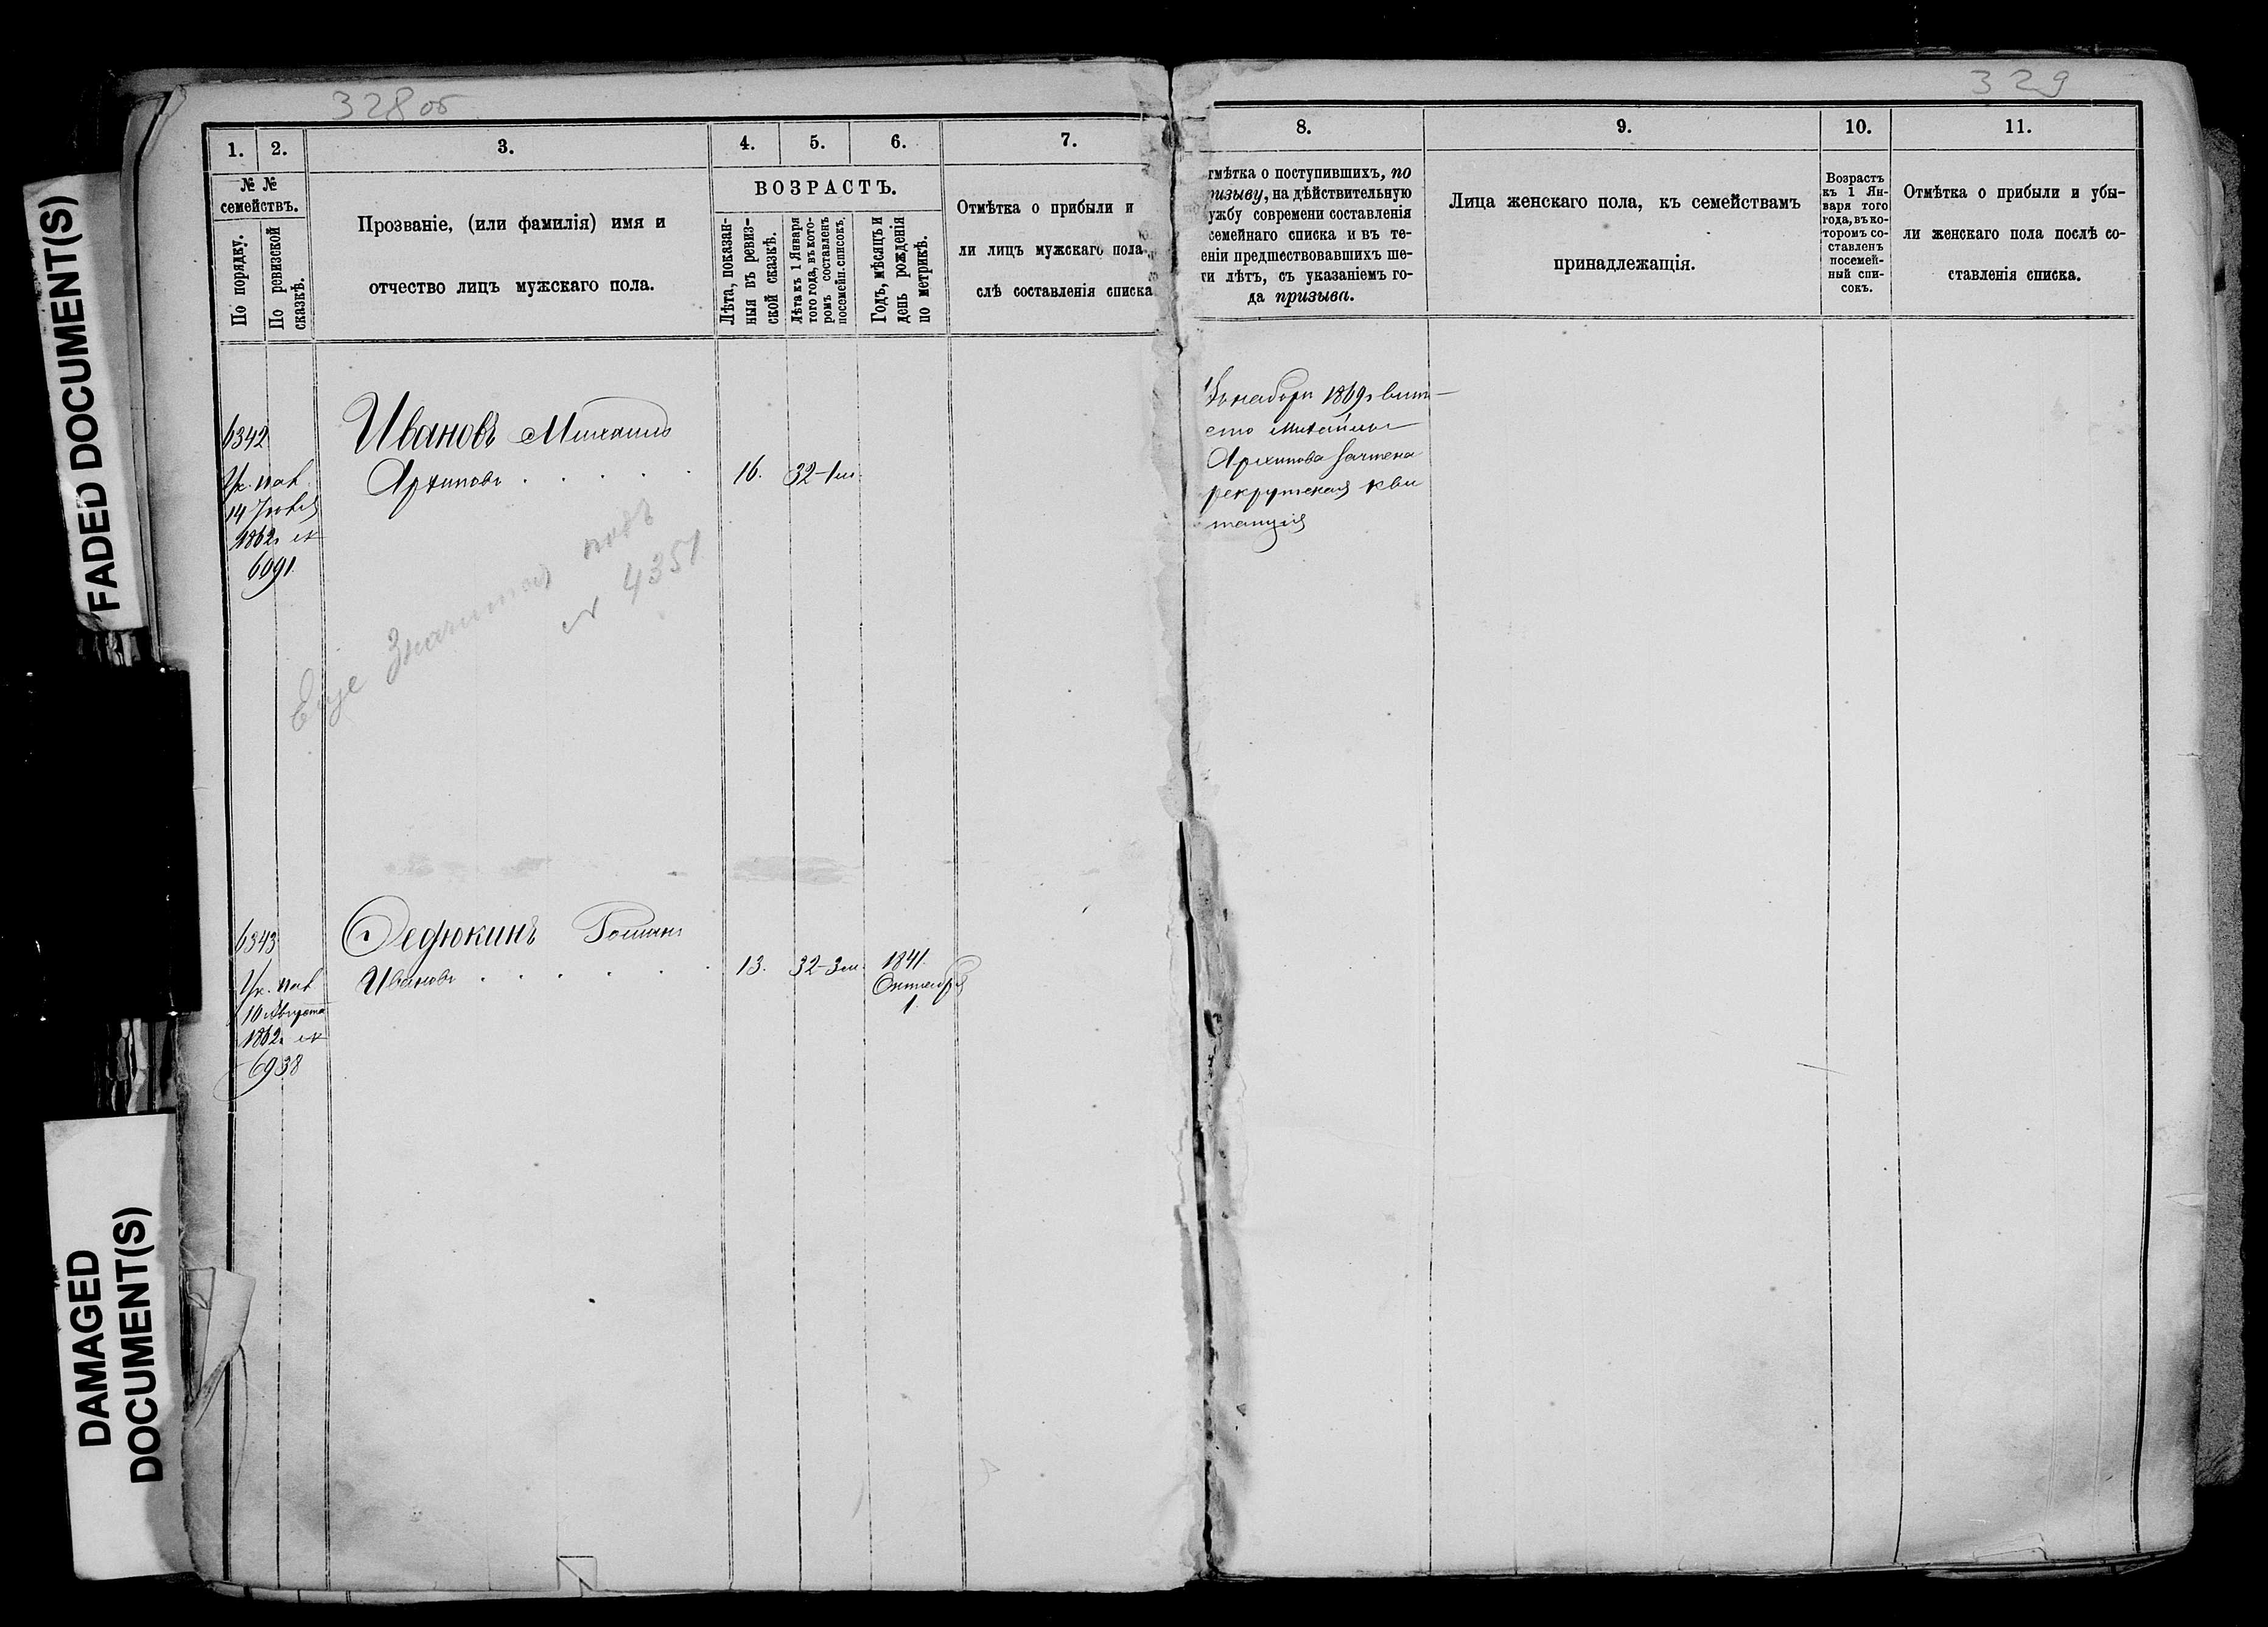 328 об
329
FADED DOCUMENT(S)
DAMAGED
DOCUMENT(S)
1.
2.
3.
4.
5.
6.
7.
№ №
семействъ.
По порядку.
По ревизской
сказкѣ.
Прозваніе, (или фамилія) имя и
отчество лицъ мужскаго пола.
ВОЗРАСТЪ.
Лѣта, показан-
ныя въ ревиз-
ской сказкѣ.
Лѣта къ 1 Января
того года, въ кото-
ромъ составленъ
посемейн. списокъ.
Годъ, мѣсяцъ и
день рожденія
по метрикѣ.
Отмѣтка о прибыли и
ли лицъ мужскаго пола
слѣ составленія списка
6342
Ук. пал.
14
1862 г. №
6091
Ивановъ Михаилъ
Архиповъ . . . .
16.
32-1 м.
Еще значится подъ
№ 4351
6343
Ук. пал.
10 Августа
1862 г. №
6938
Федюкинъ Романъ
Ивановъ . . . . . .
13.
32-3 м.
1841.
Октября
1.
8.
9.
10.
11.
тмѣтка о поступившихъ, по
ризыву, на дѣйствительную
ужбу современи составленія
семейнаго списка и въ те-
еніи предшествовавшихъ ше-
ти лѣтъ, съ указаніемъ го-
да призыва.
Лица женскаго пола, къ семействамъ
принадлежащія.
Возрастъ
къ 1 Ян-
варя того
года, въ ко-
торомъ со-
ставленъ
посемей-
ный спи-
сокъ.
Отмѣтка о прибыли и убы-
ли женскаго пола послѣ со-
ставленія списка.
наборъ 1869 г. вмѣ-
сто Михаила
Архипова зачтена
рекрутская кви
танція